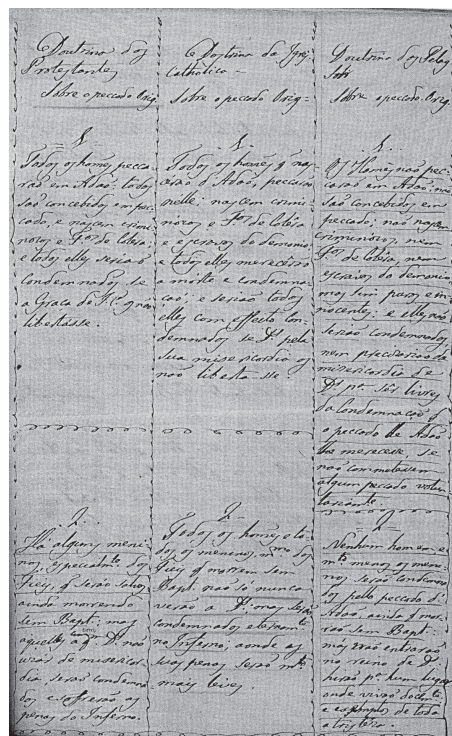 Doutrina dos
Protestantes
Sobre o peccado Orig.
1.
Todos os homẽs pecca-
rão em Adaõ; todos
saõ concebidos em pec-
cado, e nascem crimi-
nosos e F.os de Colera;
e todos elles seriaõ
condemnados, se
a Graça de J. C. os naõ
libertasse.
2.
Há alguns meni-
nos, especialm.te dos
Fieis, q̃ seraõ salvos
ainda morrendo
sem Bapt.; mas
aquelles com q.m D.s naõ
uzar de misericor-
dia, seraõ condemna-
dos e soffreraõ as
penas do Inferno.
Doutrina da Igrej.
Cathólica
Sobre o peccado Orig.
1.
Todos os homẽs q̃ nas-
cerão d'Adaõ, peccaraõ
nelle; nascem crimi-
nosos e F.os de Colera,
e escravos do demonio,
e todos elles mereceraõ
a morte e condemna-
caõ; e seriaõ todos
elles com effeito con-
demnados se D.s pela
sua misericordia os
naõ libertasse.
2.
Todos os homẽs e to-
dos os meninos, m.mo dos
Fieis q̃ morrem sem
Bapt. naõ só nunca
veraõ a D.s mas seraõ
condemnados eternam.te
no Inferno; aonde as
suas penas seraõ m.to
mais leves.
Doutrina dos Pelag
Sobre o peccado Orig.
1.
Os Homẽs naõ pec-
caraõ em Adaõ; naõ
saõ concebidos em
peccado; naõ nascem
criminosos, nem
F.os de Colera, nem
escravos do demonio
mas sim puros e in-
nocentes; e elles naõ
seraõ condemnados,
nem precizariaõ da
misericordia de
D.s p.a ser livres
da Condemnaçaõ q̃
o peccado de Adaõ
lhe merecesse, se
naõ commetessem
algum peccado volun-
tariam.te
2.
Nenhum homem, e
m.to menos os meni-
nos seraõ condemna-
dos pello peccado d'
Adaõ, ainda q̃ mor-
raõ sem Bapt.
mas naõ entraraõ
no reino de D.s
p.a hum lugar
onde viveraõ
e de toda
a tristeza.